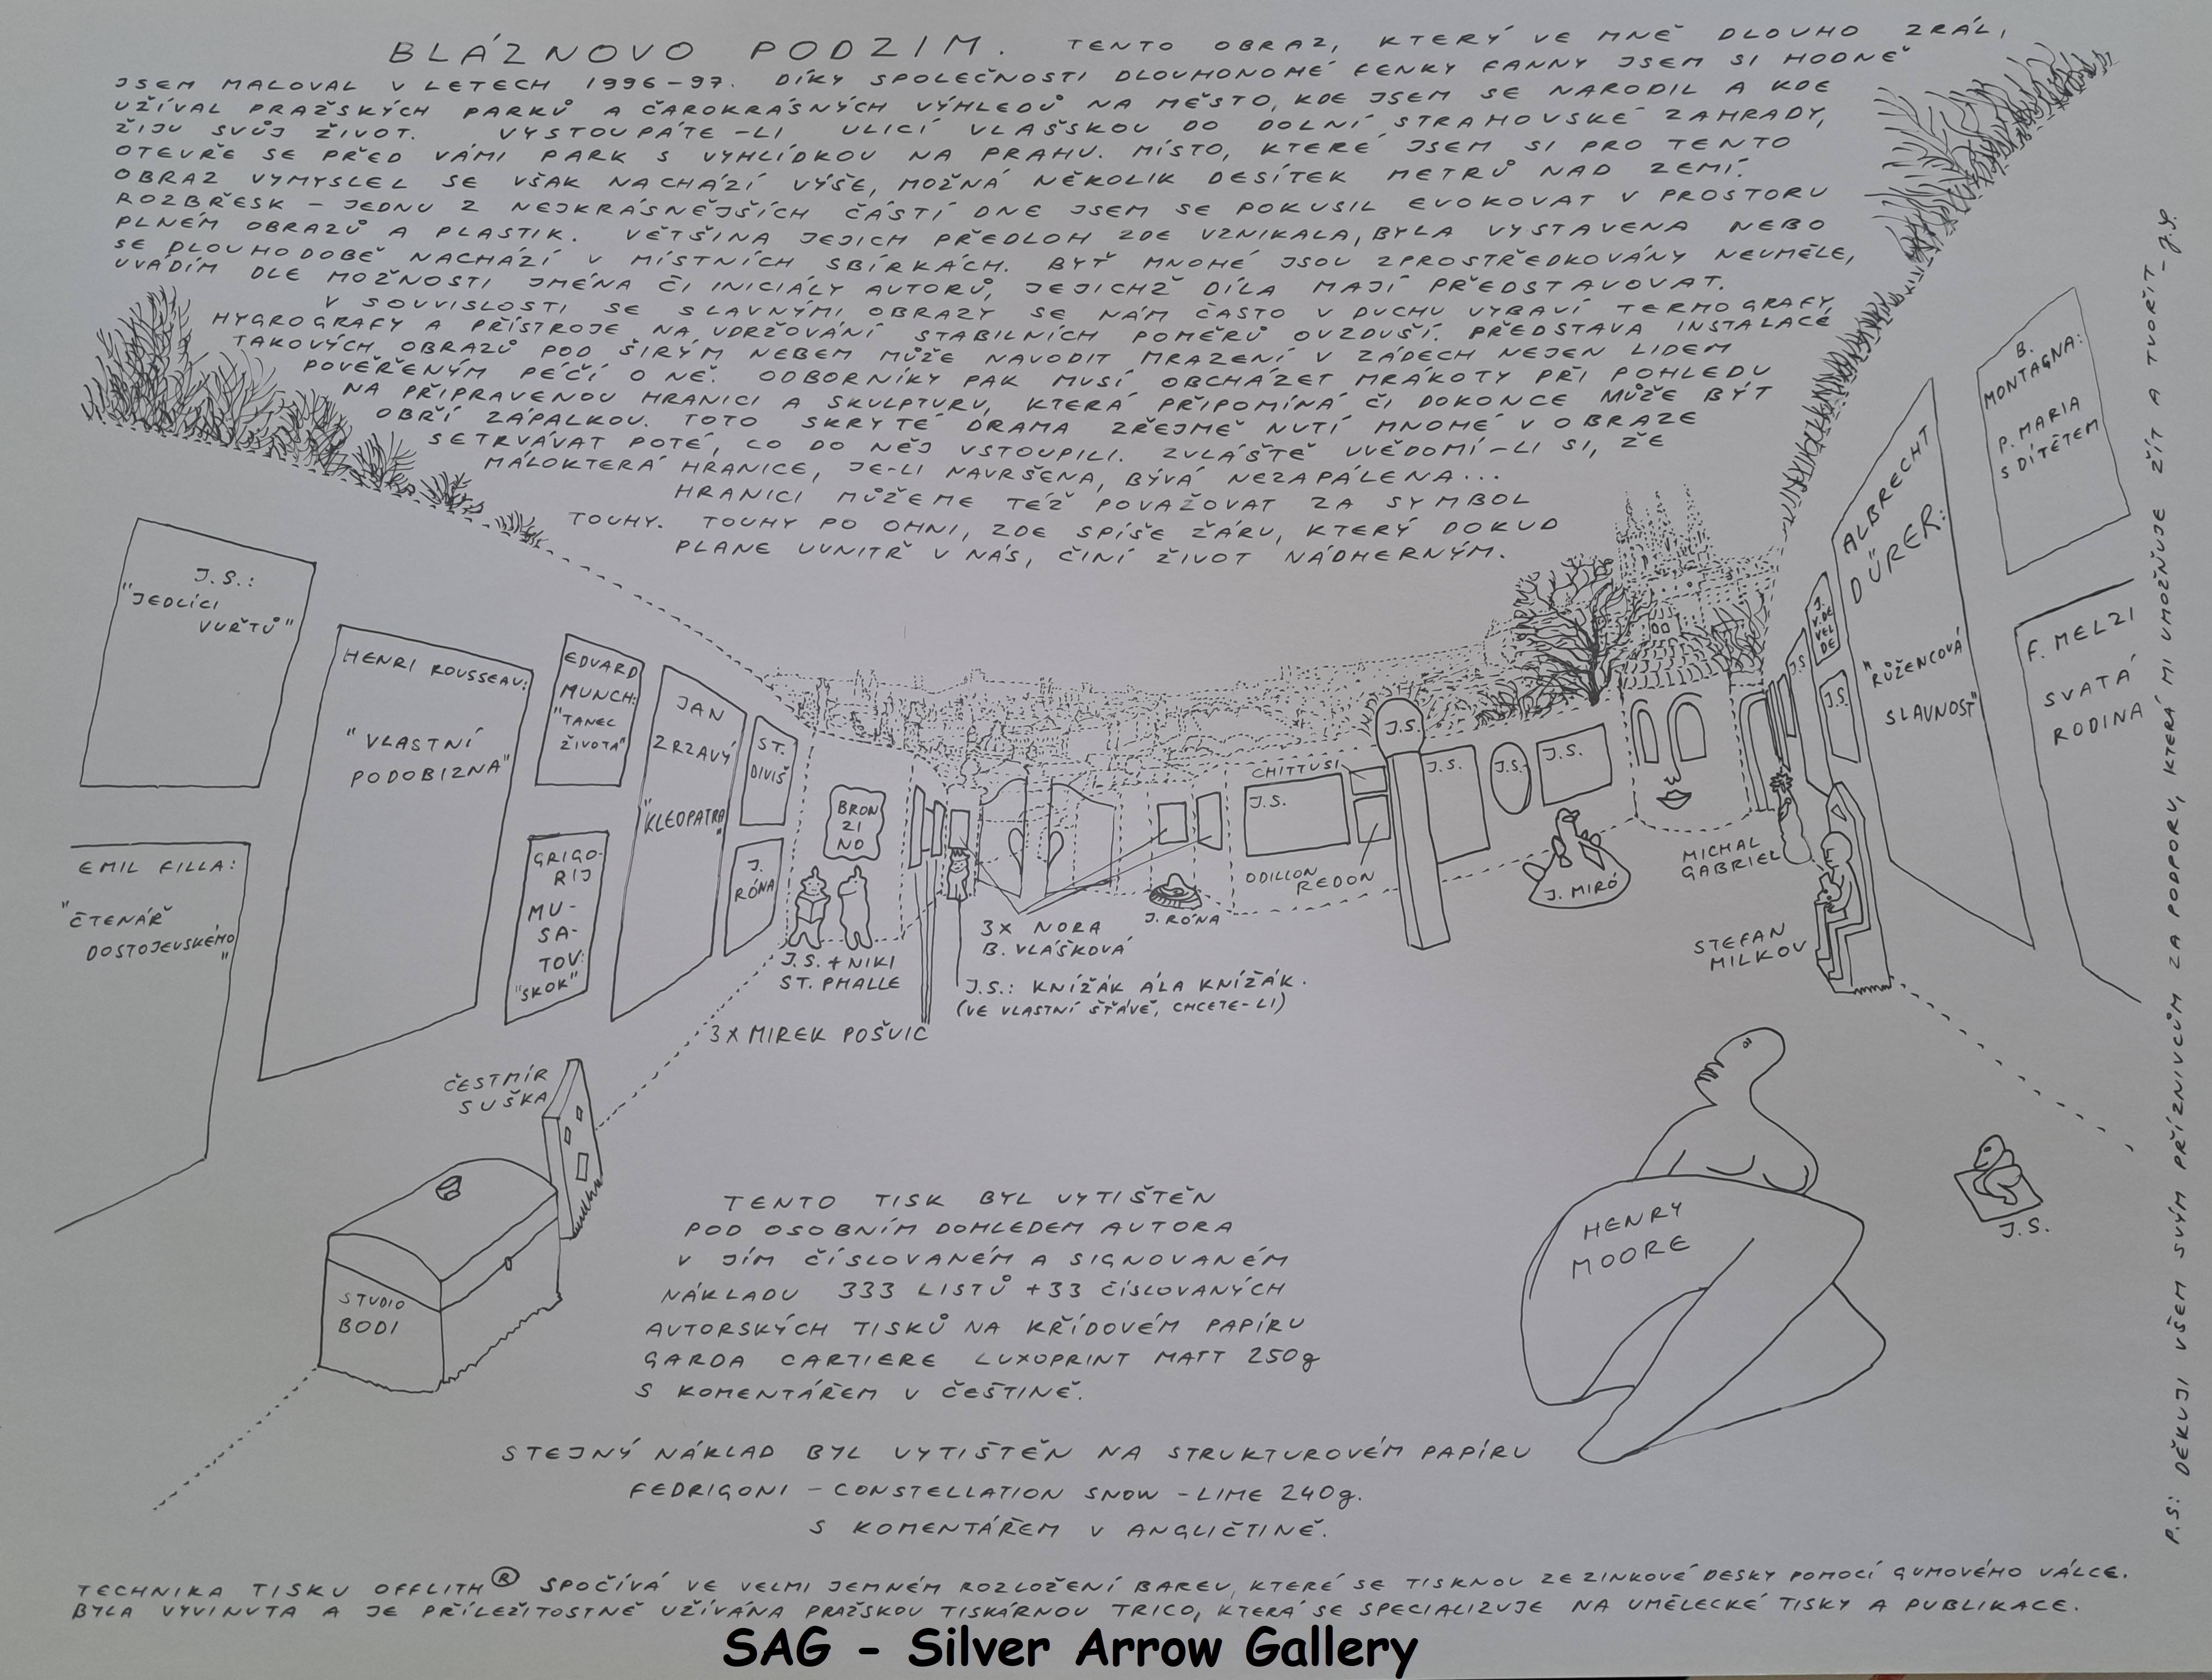 BLÁZNOVO PODZIM. TENTO OBRAZ, KTERÝ VE MNĚ DLOUHO ZRÁL,
JSEM MALOVAL V LETECH 1996-97. DÍKY SPOLEČNOSTI DLOUHONOHÉ FENKY FANNY JSEM SI HODNĚ
UŽÍVAL PRAŽSKÝCH PARKŮ A ČAROKRÁSNÝCH VÝHLEDŮ NA MĚSTO, KDE JSEM SE NARODIL A KDE
ŽIJU SVŮJ ŽIVOT. VYSTOUPÁTE-LI ULICÍ VLAŠSKOU DO DOLNÍ STRAHOVSKÉ ZAHRADY,
OTEVŘE SE PŘED VÁMI PARK S VYHLÍDKOU NA PRAHU. MÍSTO, KTERÉ JSEM SI PRO TENTO
OBRAZ VYMYSLEL SE VŠAK NACHÁZÍ VÝŠE, MOŽNÁ NĚKOLIK DESÍTEK METRŮ NAD ZEMÍ.
ROZBŘESK - JEDNU Z NEJKRÁSNĚJŠÍCH ČÁSTÍ DNE JSEM SE POKUSIL EVOKOVAT V PROSTORU
PLNÉM OBRAZŮ A PLASTIK. VĚTŠINA JEJICH PŘEDLOH ZDE VZNIKALA, BYLA VYSTAVENA NEBO
SE DLOUHODOBĚ NACHÁZÍ V MÍSTNÍCH SBÍRKÁCH. BYŤ MNOHÉ JSOU ZPROSTŘEDKOVÁNY NEUMĚLE,
UVÁDÍM DLE MOŽNOSTI JMÉNA ČI INICIÁLY AUTORŮ, JEJICHŽ DÍLA MAJÍ PŘEDSTAVOVAT.
V SOUVISLOSTI SE SLAVNÝMI OBRAZY SE NÁM ČASTO V DUCHU VYBAVÍ TERMOGRAFY,
HYGROGRAFY A PŘÍSTROJE NA UDRŽOVÁNÍ STABILNÍCH POMĚRŮ OVZDUŠÍ. PŘEDSTAVA INSTALACE
TAKOVÝCH OBRAZŮ POD ŠIRÝM NEBEM MŮŽE NAVODIT MRAZENÍ V ZÁDECH NEJEN LIDEM
POVĚŘENÝM PÉČÍ O NĚ. ODBORNÍKY PAK MUSÍ OBCHÁZET MRÁKOTY PŘI POHLEDU
NA PŘIPRAVENOU HRANICI A SKULPTURU, KTERÁ PŘIPOMÍNÁ ČI DOKONCE MŮŽE BÝT
OBŘÍ ZÁPALKOU. TOTO SKRYTÉ DRAMA ZŘEJMĚ NUTÍ MNOHÉ V OBRAZE
SETRVÁVAT POTÉ, CO DO NĚJ VSTOUPILI. ZVLÁŠTĚ UVĚDOMÍ-LI SI, ŽE
MÁLOKTERÁ HRANICE, JE-LI NAVRŠENA, BÝVÁ NEZAPÁLENA...
HRANICI MŮŽEME TÉŽ POVAŽOVAT ZA SYMBOL
TOUHY. TOUHY PO OHNI, ZDE SPÍŠE ŽÁRU, KTERÝ DOKUD
PLANE UVNITŘ V NÁS, ČINÍ ŽIVOT NÁDHERNÝM.
J.S.:
"JEDLÍCI
VUŘTŮ"
HENRI ROUSSEAU:
"VLASTNÍ
PODOBIZNA"
EDVARD
MUNCH:
"TANEC
ŽIVOTA"
JAN
ZRZAVÝ
"KLEOPATRA"
ST.
DIVIŠ
EMIL FILLA:
"ČTENÁŘ
DOSTOJEVSKÉHO"
GRIGO-
RIJ
MU-
SA-
TOV:
"SKOK"
J.
RÓNA
BRON
ZI
NO
J.S. + NIKI
ST. PHALLE
3X MIREK POŠVIC
3X NORA
B. VLÁŠKOVÁ
J.S.: KNÍŽÁK ÁLA KNÍŽÁK.
(VE VLASTNÍ ŠŤÁVĚ, CHCETE-LI)
J. RÓNA
CHITTUSI
J.S.
ODILLON
REDON
J.S.
J.S.
J.S.
J.S.
J. MIRÓ
MICHAL
GABRIEL
STEFAN
MILKOV
J.S.
J.
V.DE
VEL
DE
J.S.
ALBRECHT
DÜRER:
"RŮŽENCOVÁ
SLAVNOST"
B.
MONTAGNA:
P. MARIA
S DÍTĚTEM
F. MELZI
SVATÁ
RODINA
ČESTMÍR
SUŠKA
STUDIO
BODI
HENRY
MOORE
J.S.
TENTO TISK BYL VYTIŠTĚN
POD OSOBNÍM DOHLEDEM AUTORA
V JÍM ČÍSLOVANÉM A SIGNOVANÉM
NÁKLADU 333 LISTŮ +33 ČÍSLOVANÝCH
AUTORSKÝCH TISKŮ NA KŘÍDOVÉM PAPÍRU
GARDA CARTIERE LUXOPRINT MATT 250g
S KOMENTÁŘEM V ČEŠTINĚ.
STEJNÝ NÁKLAD BYL VYTIŠTĚN NA STRUKTUROVÉM PAPÍRU
FEDRIGONI - CONSTELLATION SNOW - LIME 240g.
S KOMENTÁŘEM V ANGLIČTINĚ.
TECHNIKA TISKU OFFLITH® SPOČÍVÁ VE VELMI JEMNÉM ROZLOŽENÍ BAREV, KTERÉ SE TISKNOU ZE ZINKOVÉ DESKY POMOCÍ GUMOVÉHO VÁLCE.
BYLA VYVINUTA A JE PŘÍLEŽITOSTNĚ UŽÍVÁNA PRAŽSKOU TISKÁRNOU TRICO, KTERÁ SE SPECIALIZUJE NA UMĚLECKÉ TISKY A PUBLIKACE.
P.S: DĚKUJI VŠEM SVÝM PŘÍZNIVCŮM ZA PODPORU, KTERÁ MI UMOŽŇUJE ŽÍT A TVOŘIT - J.S.
SAG - Silver Arrow Gallery